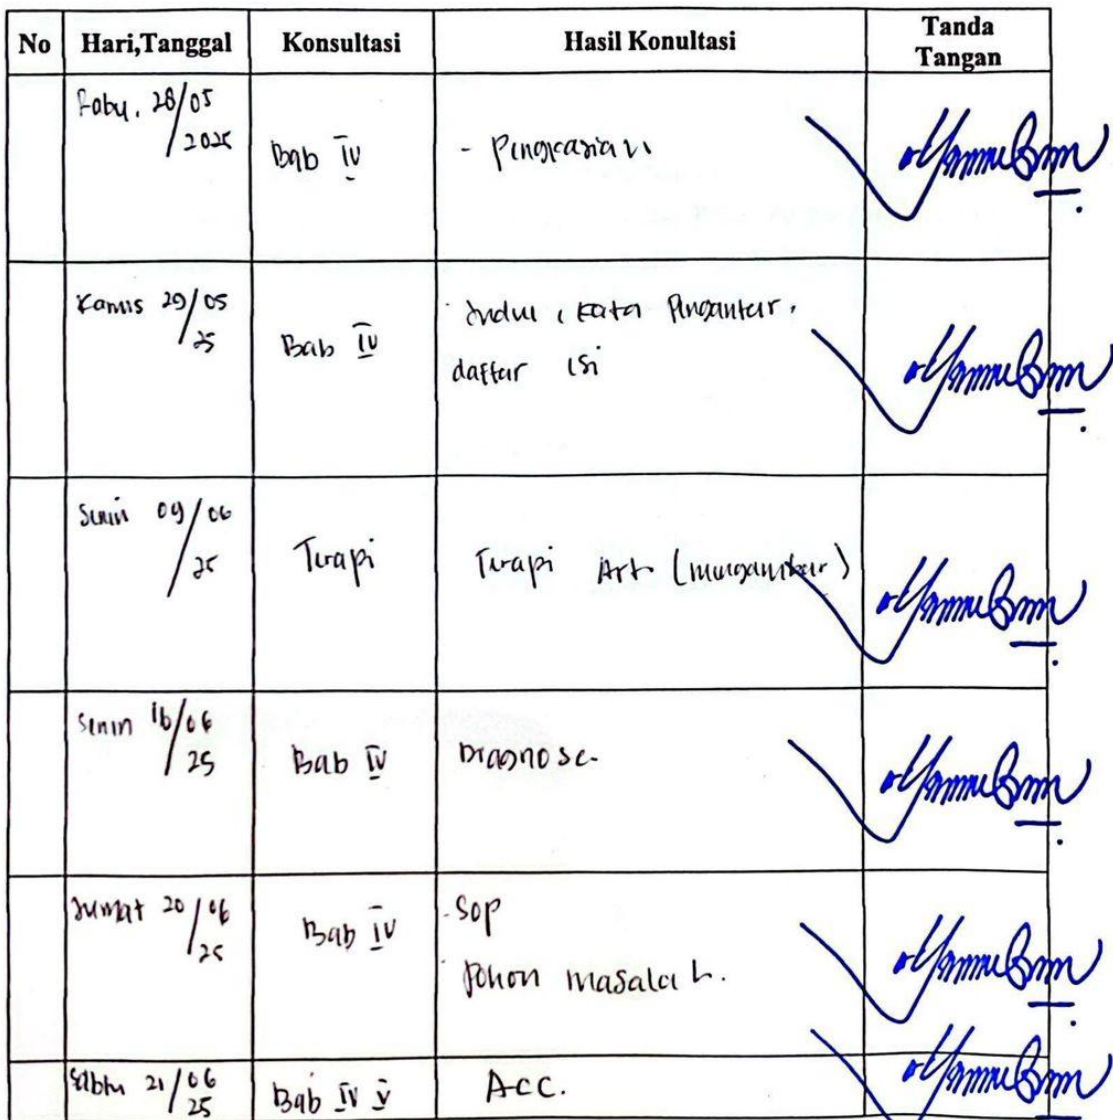 No Hari,Tanggal Konsultasi Hasil Konultasi Tanda Tangan
Rabu, 28/05 2025 Bab IV - Pengkajian
Kamis 29/05 25 Bab IV - Judul, Kata Pengantar,
daftar isi
Senin 09/06 25 Terapi Terapi Art (menggambar)
Senin 16/06 25 Bab IV Diagnosa
Jumat 20/06 25 Bab IV - SOP
- Pohon masalah.
Sabtu 21/06 25 Bab IV V Acc.